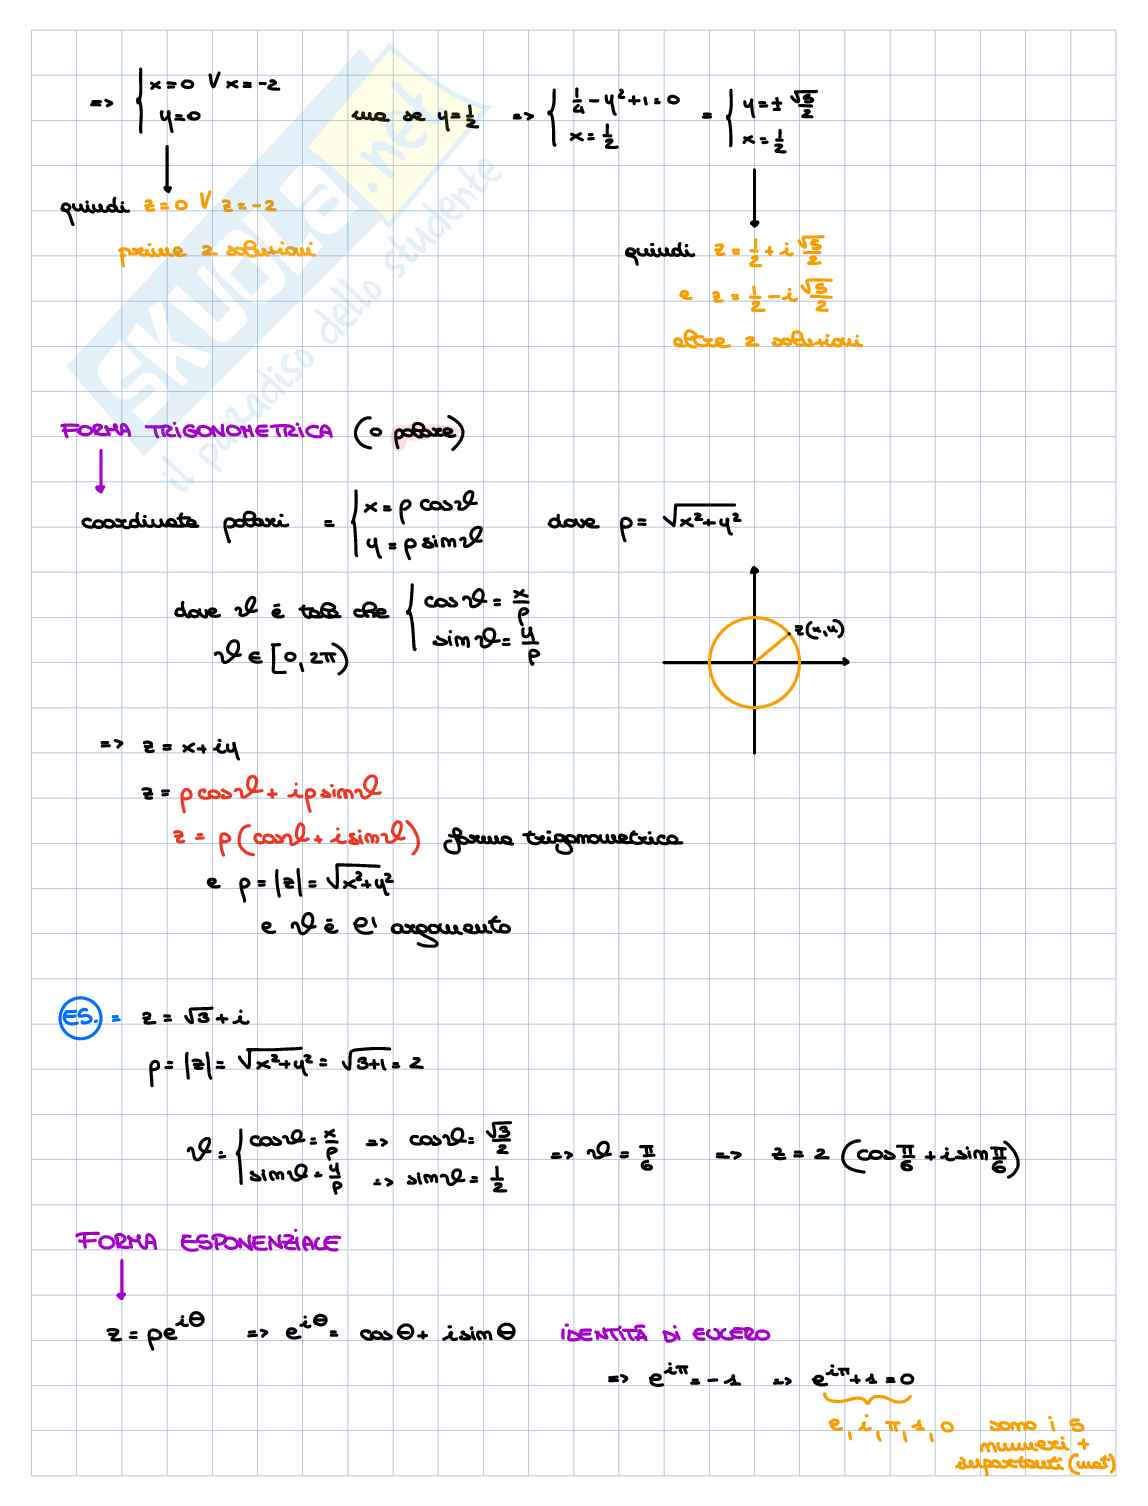 => { x=0 V x=-2
y=0
ma se y=1/2 => { 1/4 - y²+1=0
x=1/2
= { y=± √5/2
x=1/2
quindi z=0 V z=-2
prime 2 soluzioni
quindi z=1/2 + i √5/2
e z=1/2 - i √5/2
altre 2 soluzioni
FORMA TRIGONOMETRICA (o polare)
coordinate polari = { x=ρ cosϑ
y=ρ sinϑ
dove ρ= √x²+y²
dove ϑ è tale che { cosϑ = x/ρ
sinϑ = y/ρ
ϑ ∈ [0, 2π)
z(x,y)
=> z = x+iy
z = ρ cosϑ + iρ sinϑ
z = ρ (cosϑ + i sinϑ) forma trigonometrica
e ρ = |z| = √x²+y²
e ϑ è l' argomento
ES. = z = √3 + i
ρ = |z| = √x²+y² = √3+1 = 2
ϑ = { cosϑ = x/ρ => cosϑ = √3/2
sinϑ = y/ρ => sinϑ = 1/2
=> ϑ = π/6 => z = 2 (cos π/6 + i sin π/6)
FORMA ESPONENZIALE
z = ρe^iθ => e^iθ = cosθ + i sinθ IDENTITÀ DI EULERO
=> e^iπ = -1 => e^iπ + 1 = 0
e, i, π, 1, 0 sono i 5
numeri +
importanti (mat)
SKUOLA.net
il paradiso dello studente